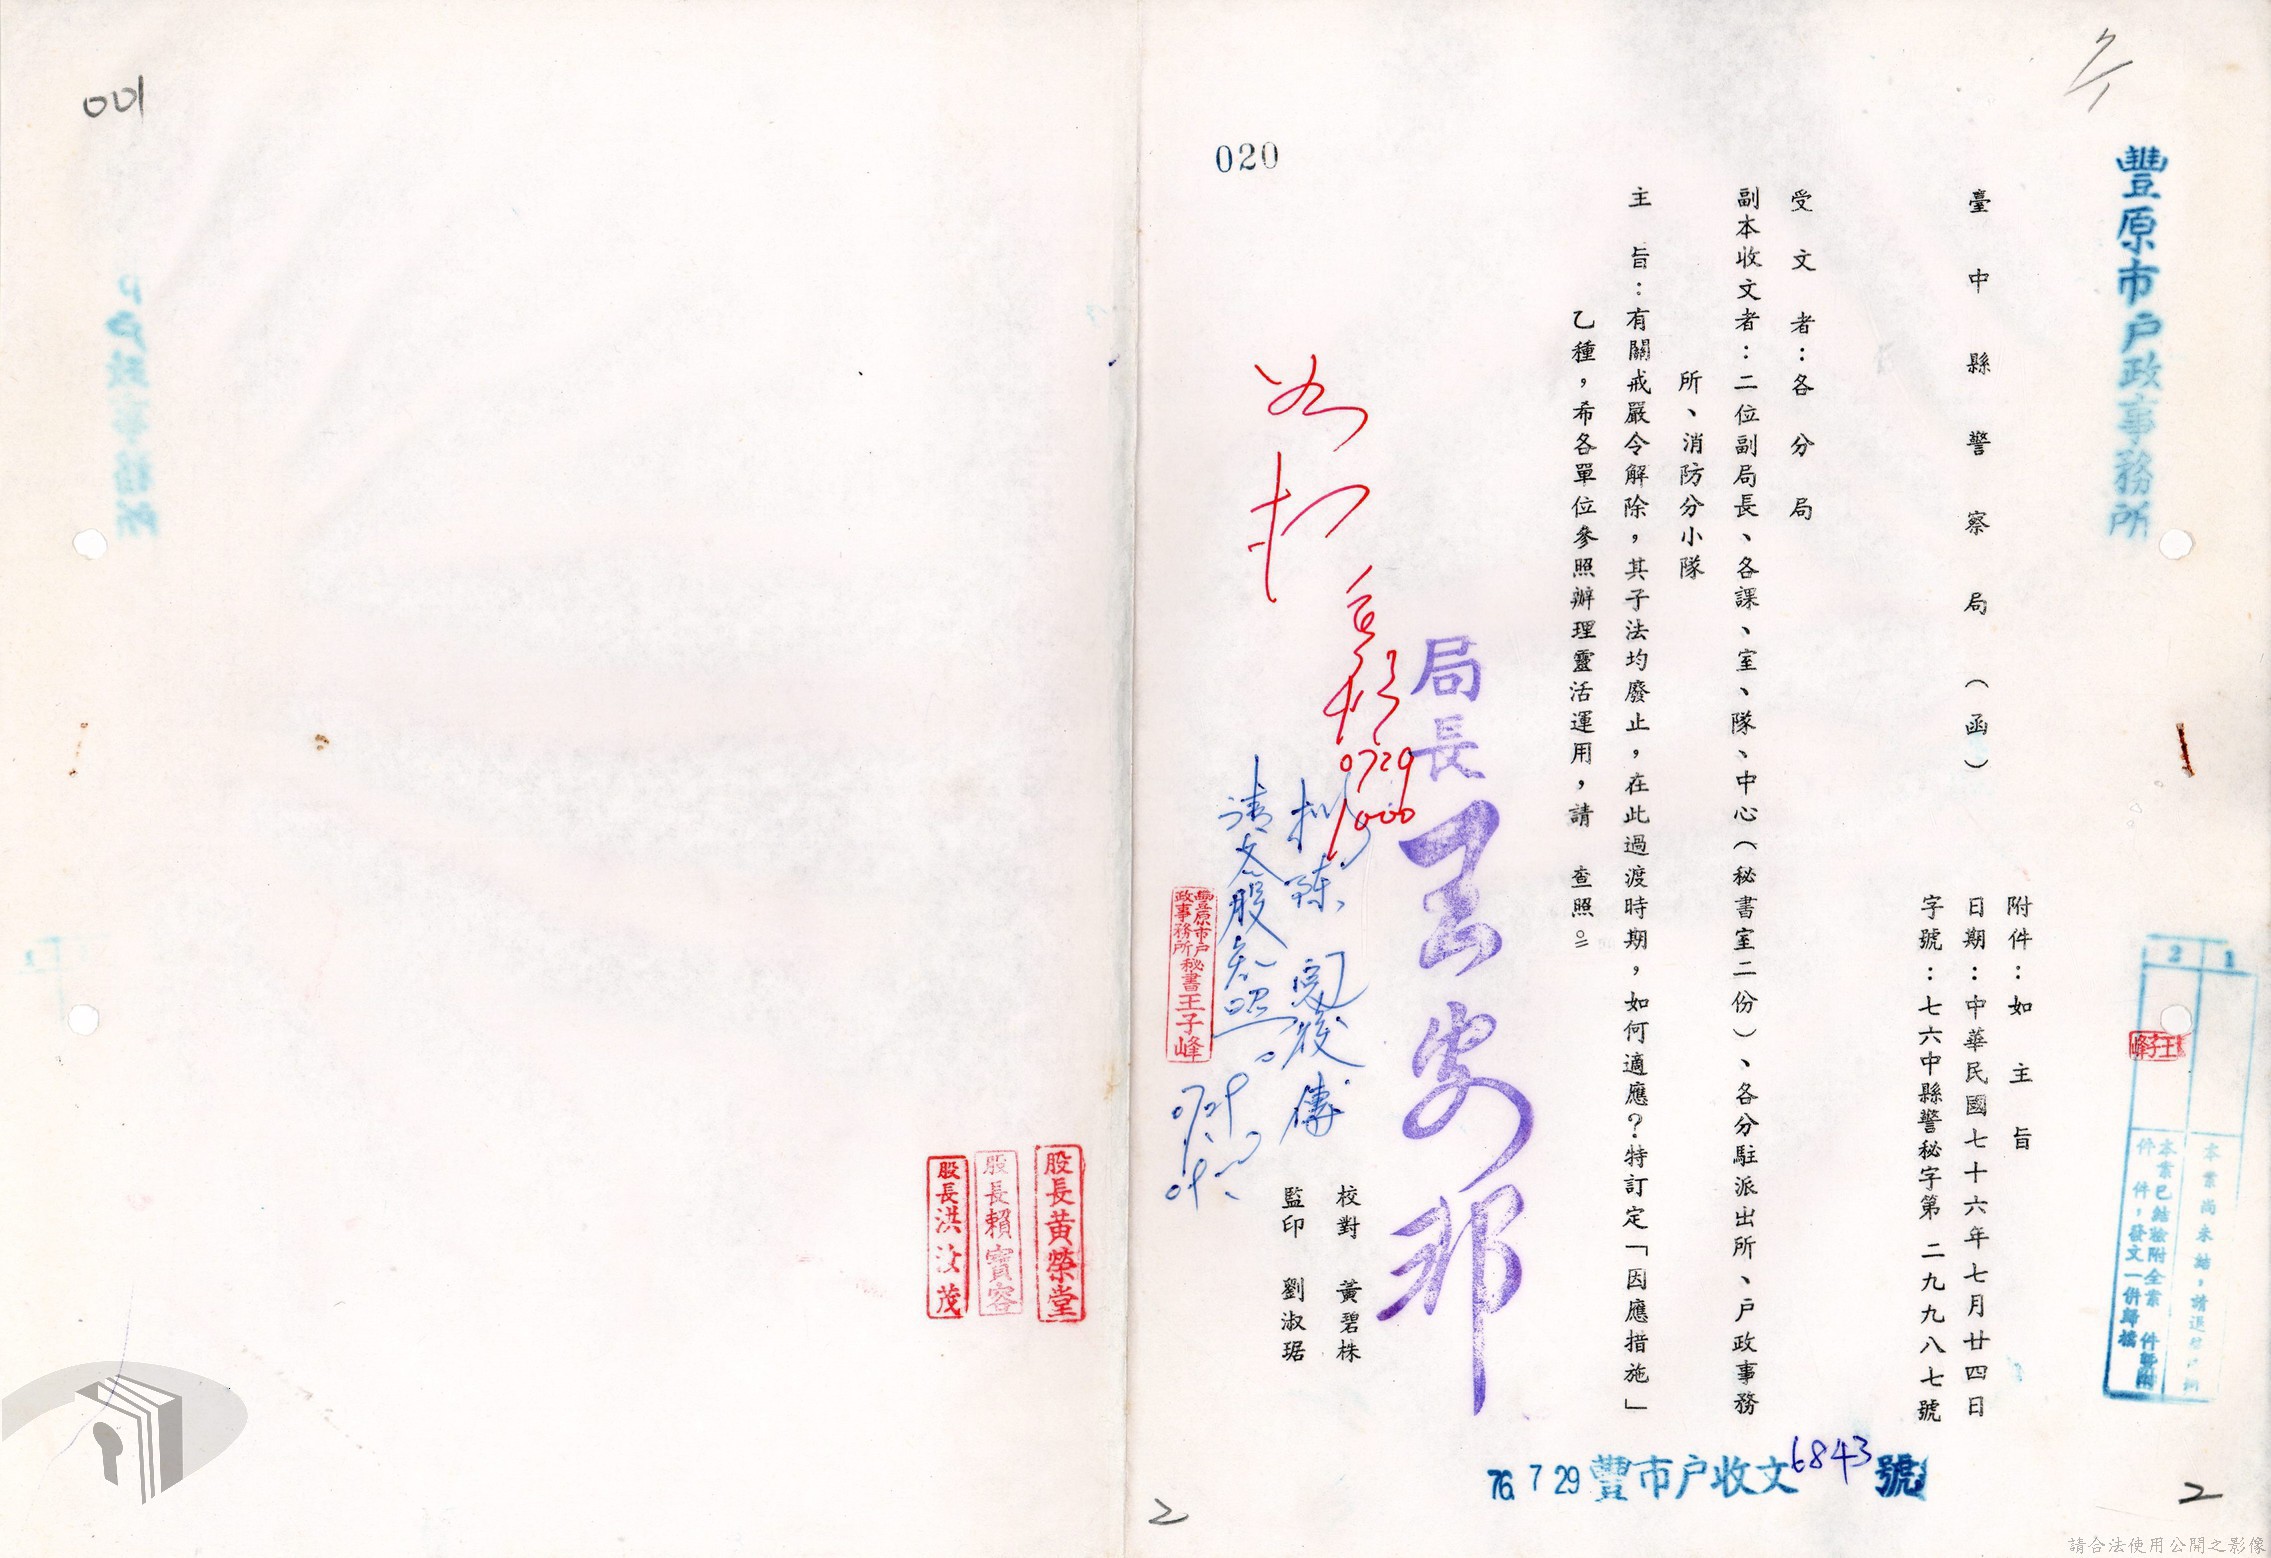 豐原市戶政事務所
臺中縣警察局（函）
附件：如主旨
日期：中華民國七十六年七月廿四日
字號：七六中縣警秘字第二九九八七號
受文者：各分局
副本收文者：二位副局長、各課、室、隊、中心（秘書室二份）、各分駐派出所、戶政事務
所、消防分小隊
主旨：有關戒嚴令解除，其子法均廢止，在此過渡時期，如何適應？特訂定「因應措施」
乙種，希各單位參照辦理靈活運用，請　查照。
局長
校對　黃碧株
監印　劉淑琚
0729
1000
擬陳閱後傳
請各股知照。
豐原市戶政事務所秘書王子峰
76. 7 29 豐市戶收文6843號
020
1
2
本案尚未結，請退
本案已結檢附全案　件歸附
件　件，發文一併歸檔
王子峰
2
2
股長黃榮堂
股長賴寶容
股長洪汶茂
001
請合法使用公開之影像